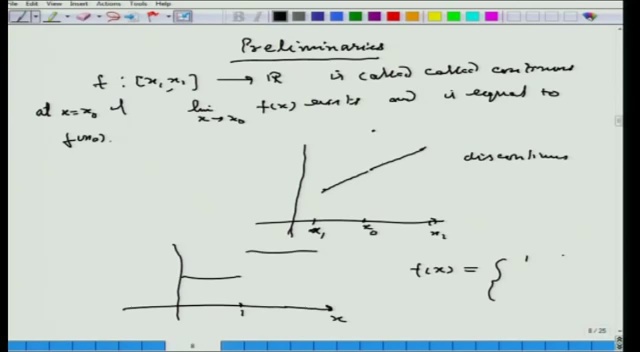 File Edit View Insert Actions Tools Help
Preliminaries
f : [x₁, x₁] → ℝ is called called continuous
at x=x₀ if lim x→x₀ f(x) exists and is equal to
f(x₀).
discontinuous
x₁ x₀ x₂
f(x) = { 1
1 x
8 / 25
8